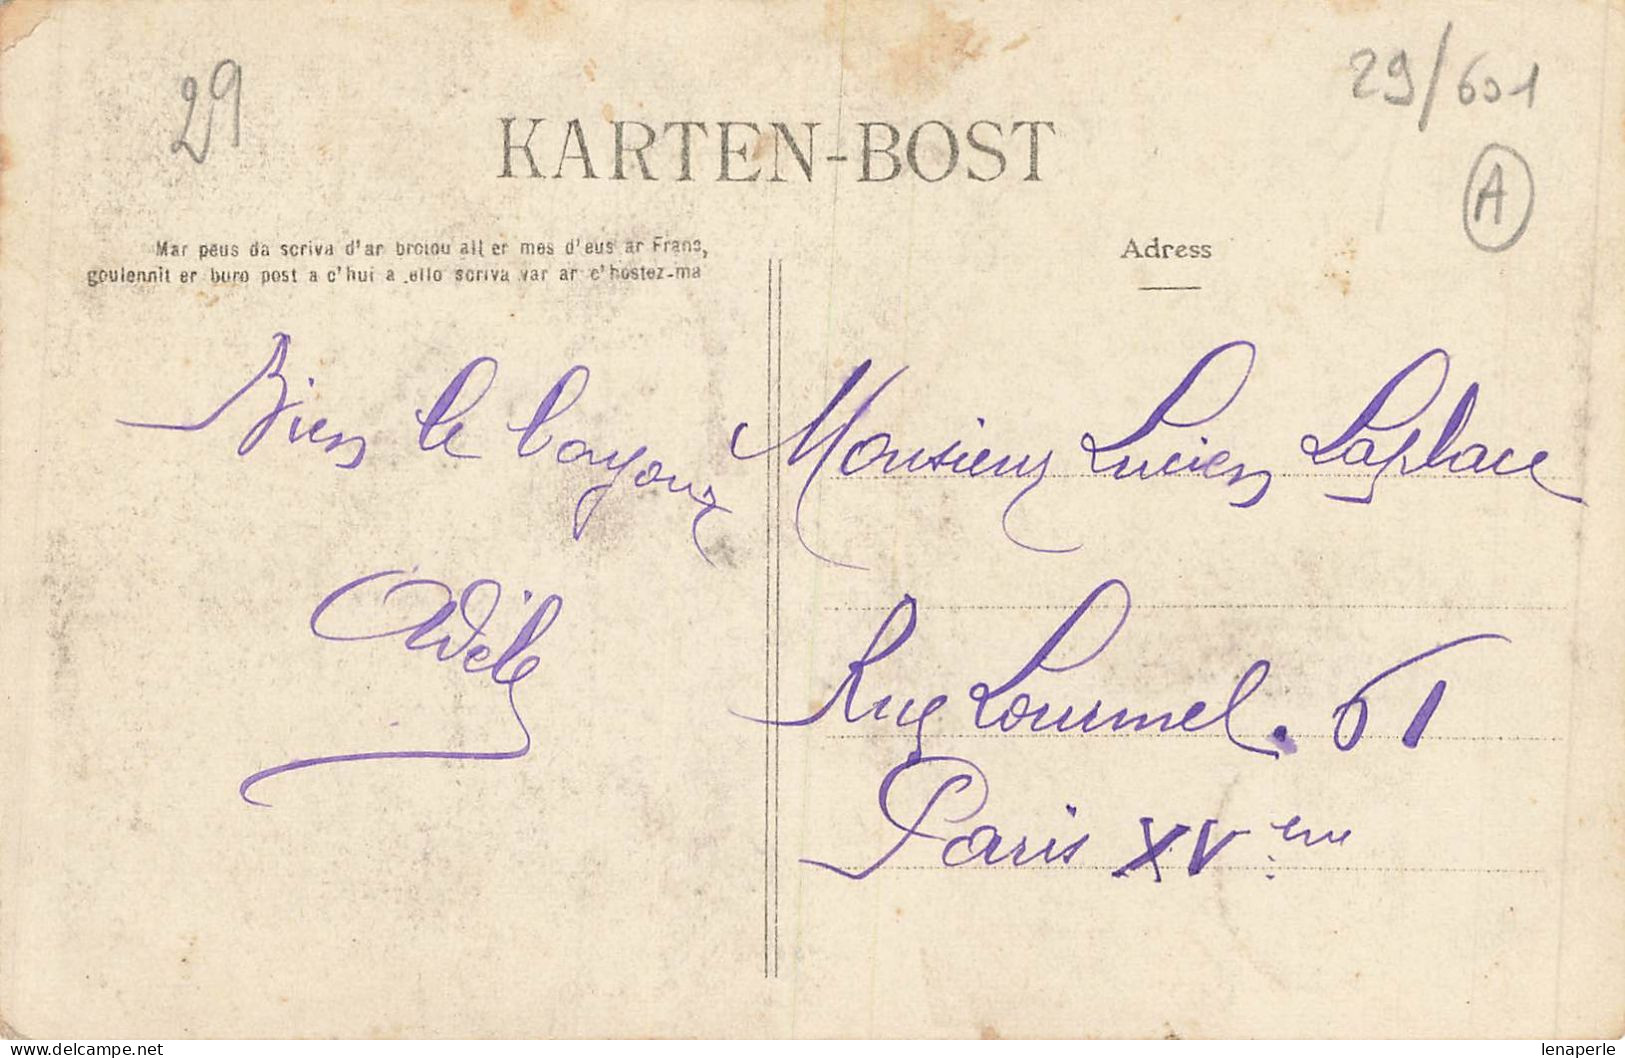 29
29/601
A
KARTEN-BOST
Mar peus da scriva d'ar broiou all er mes d'eus ar Frans,
goulennit er buro post a c'hui a ello scriva var ar c'hostez-ma
Adress
Bien le bonjour
Adèle
Monsieur Lucien Laplace
Rue Lourmel. 61
Paris XVème
lenaperle